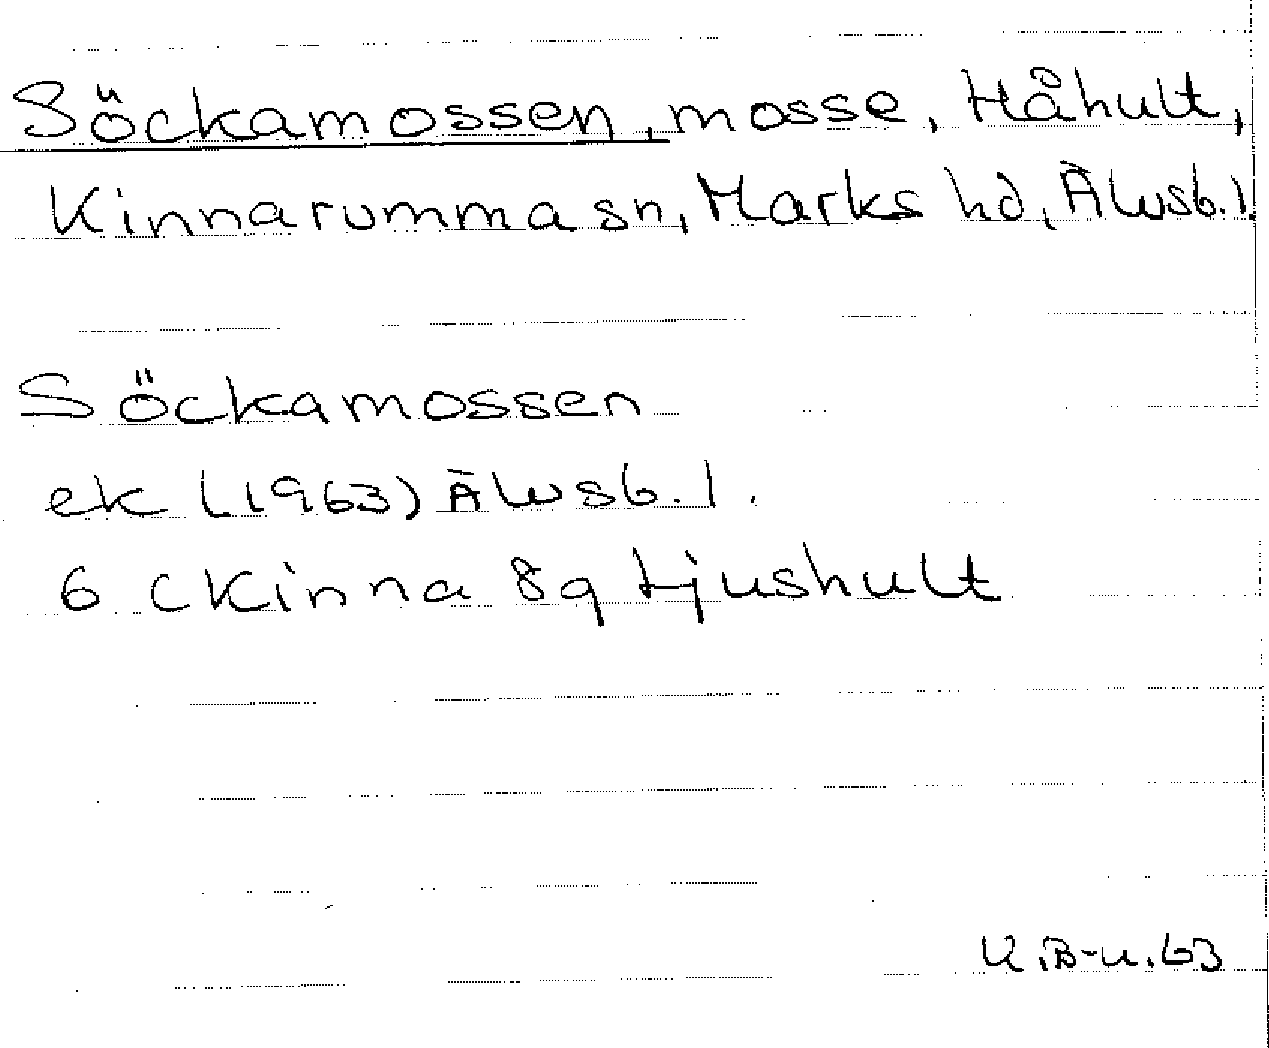 Söckamossen, mosse, Håhult,
Kinnarumma sn, Marks hd, Älvsb. l.
Söckamossen
ek (1963) Älvsb. l.
6 C Kinna 8g Ljushult
K.B-n. 63